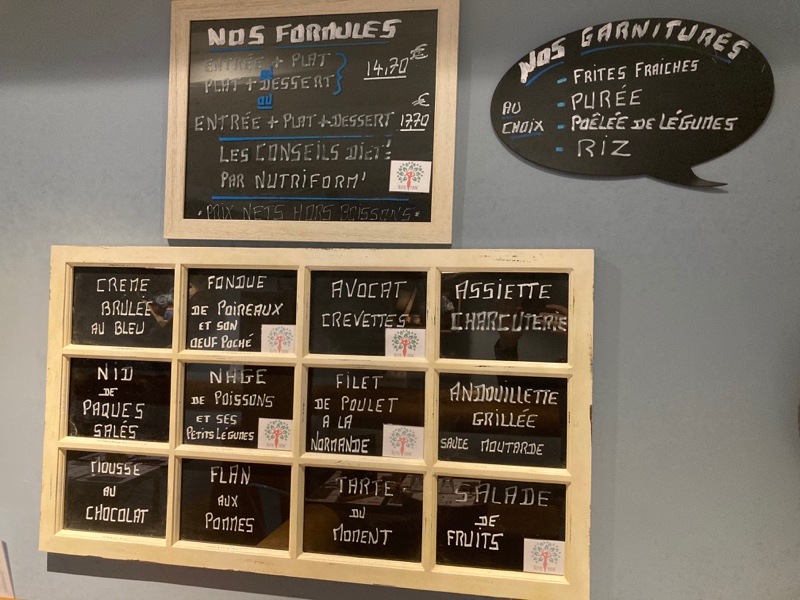 NOS FORMULES
ENTRÉE + PLAT
OU
PLAT + DESSERT
14,70€
OU
ENTRÉE + PLAT + DESSERT 17,70€
LES CONSEILS DIET!
PAR NUTRIFORM'
PRIX NETS HORS BOISSONS
NOS GARNITURES
AU CHOIX
- FRITES FRAICHES
- PURÉE
- POÊLÉE DE LÉGUMES
- RIZ
CREME
BRULÉE
AU BLEU
FONDUE
DE POIREAUX
ET SON
OEUF POCHÉ
AVOCAT
CREVETTES
ASSIETTE
CHARCUTERIE
NID
DE
PAQUES
SALÉS
NAGE
DE POISSONS
ET SES
PETITS LÉGUMES
FILET
DE POULET
A LA
NORMANDE
ANDOUILLETTE
GRILLÉE
SAUCE MOUTARDE
MOUSSE
AU
CHOCOLAT
FLAN
AUX
POMMES
TARTE
DU
MOMENT
SALADE
DE
FRUITS